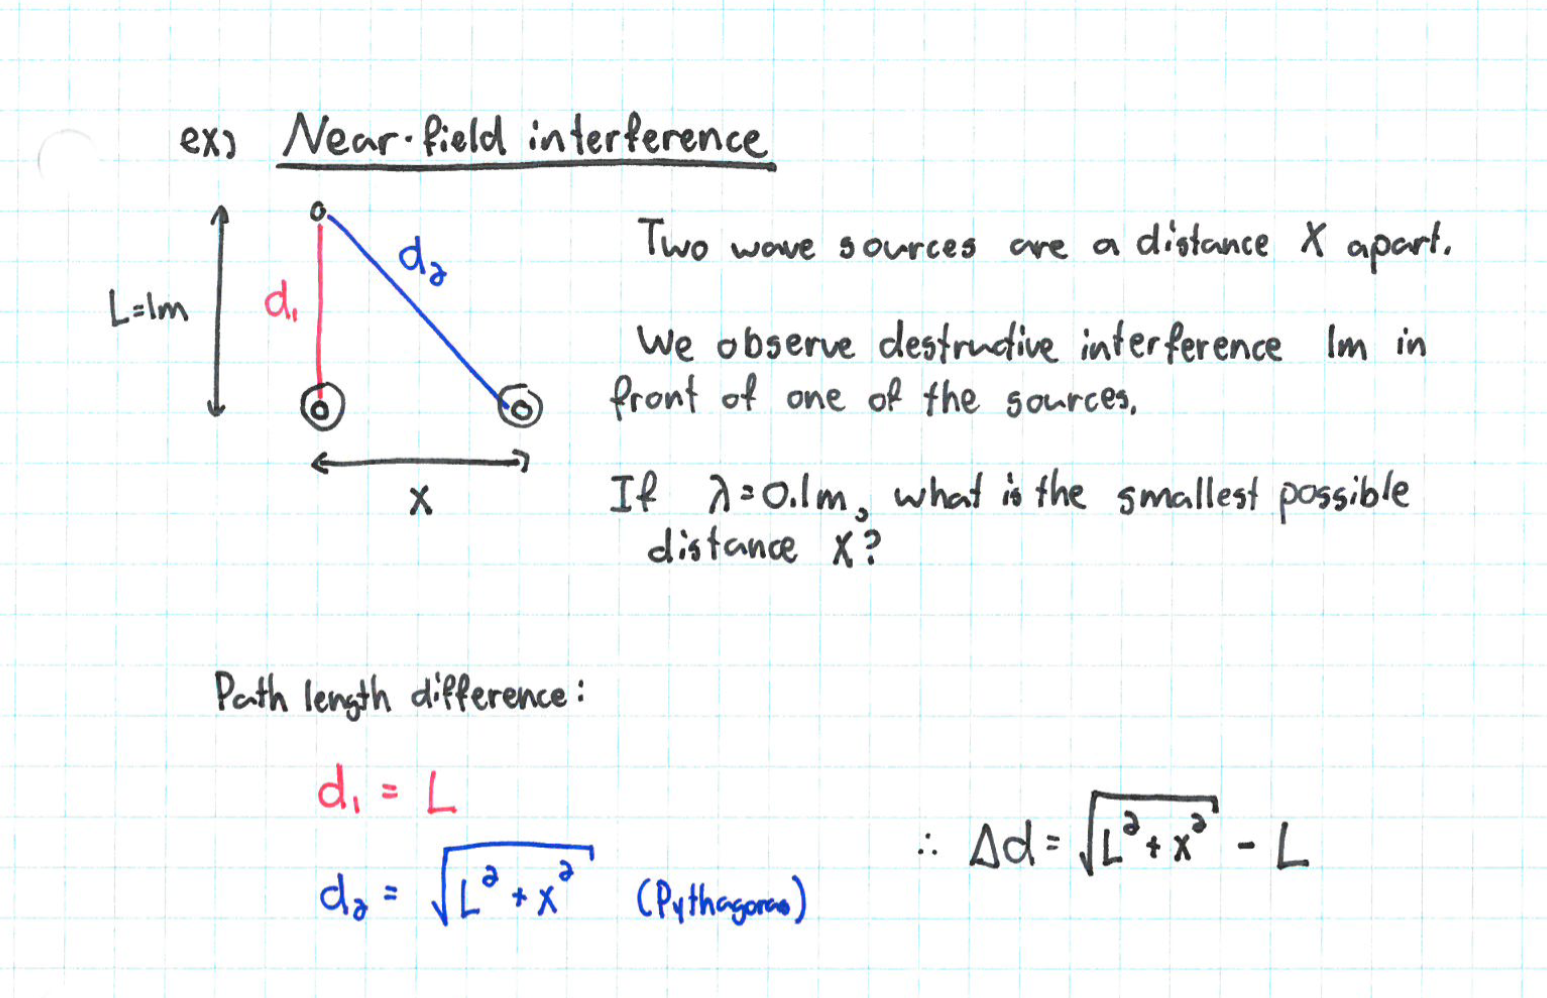 ex) Near-field interference
L=1m
d₁
d₂
x
Two wave sources are a distance x apart.
We observe destructive interference 1m in
front of one of the sources.
If λ=0.1m, what is the smallest possible
distance x?
Path length difference:
d₁ = L
d₂ = √(L² + x²) (Pythagoras)
∴ Δd = √(L² + x²) - L